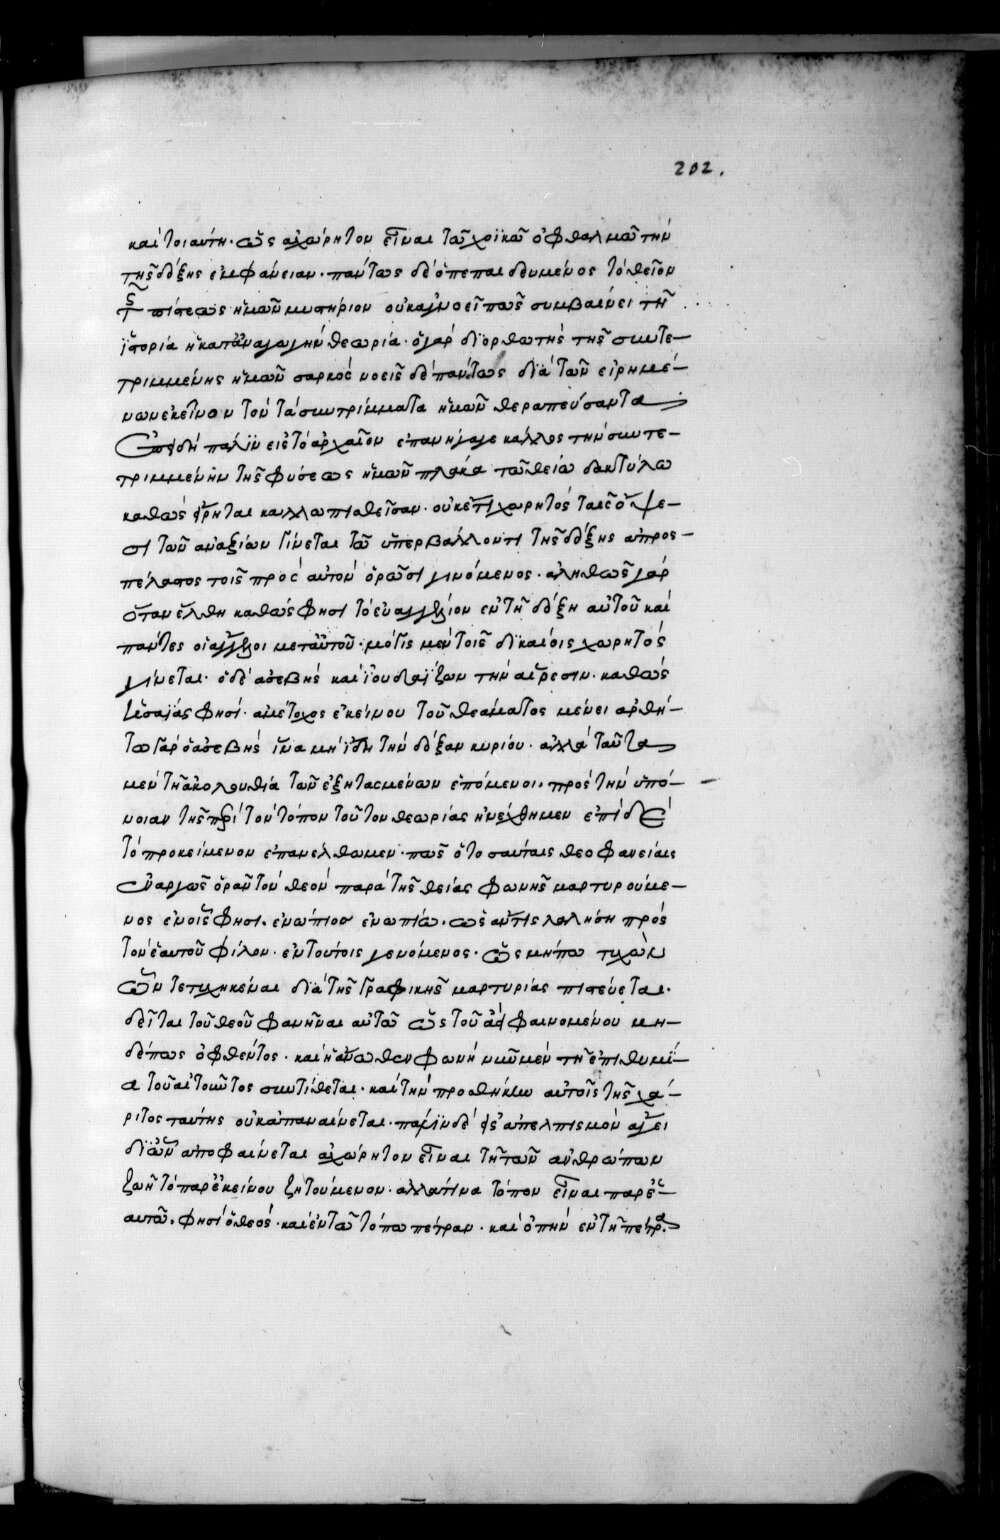 202.
καὶ τοιαύτη. ὡς ἀχώρητον εἶναι τῶ χοϊκῶ ὀφθαλμῶ τὴν
τῆς δόξης ἐμφάνειαν. πάντως δὲ ὁ πεπαιδυμένος τὸ θεῖον
τῆς πίστεως ἡμῶν μυστήριον οὐκ ἀγνοεῖ πῶς συμβαίνει τῆ
ἱστορία ἡ κατ' ἀναγωγὴν θεωρία. ὁ γὰρ διορθωτὴς τῆς συντε-
τριμμένης ἡμῶν σαρκὸς νοεῖς δὲ πάντως διὰ τῶν εἰρημέ-
νων ἐκεῖνον τὸν τὰ συντρίμματα ἡμῶν θεραπεύσαντα
ἐπειδὴ πάλιν εἰς τὸ ἀρχαῖον ἐπανήγαγε κάλλος τὴν συντε-
τριμμένην τῆς φύσεως ἡμῶν πλάκα τῶ θείω δακτύλω
καθὼς εἴρηται καλλωπισθεῖσαν. οὐκέτι χωρητὸς ταῖς ὄψε-
σι τῶν ἀναξίων γίνεται τῶ ὑπερβάλλοντι τῆς δόξης ἀπρος-
πέλαστος τοῖς πρὸς αὐτὸν ὁρῶσι γινόμενος. ἀληθῶς γὰρ
ὅταν ἔλθη καθώς φησι τὸ εὐαγγέλιον ἐν τῆ δόξη αὐτοῦ καὶ
πάντες οἱ ἄγγελοι μετ' αὐτοῦ. μόγις μὲν τοῖς δικαίοις χωρητὸς
γίνεται. ὁ δὲ ἀσεβὴς καὶ ἰουδαΐζων τὴν αἵρεσιν. καθὼς
ἡσαΐας φησί. ἀμέτοχος ἐκείνου τοῦ θεάματος μένει ἀρθή-
τω γὰρ ὁ ἀσεβὴς ἵνα μὴ ἴδη τὴν δόξαν κυρίου. ἀλλὰ ταῦτα
μὲν τῆ ἀκολουθία τῶν ἐξητασμένων ἑπόμενοι. πρὸς τὴν ὑπό-
νοιαν τῆς περὶ τὸν τόπον τοῦτον θεωρίας ἠνέχθημεν ἐπὶ δὲ
τὸ προκείμενον ἐπανέλθωμεν. πῶς ὁ τοσαύταις θεοφανείαις
ἐναργῶς ὁρᾶν τὸν θεὸν παρὰ τῆς θείας φωνῆς μαρτυρούμε-
νος ἐν οἷς φησι. ἐνώπιος ἐνωπίω. ὡς ἄν τις λαλήση πρὸς
τὸν ἑαυτοῦ φίλον. ἐν τούτοις γενόμενος. ὡς μήπω τυχὼν
ὧν τετυχηκέναι διὰ τῆς γραφικῆς μαρτυρίας πιστεύεται.
δεῖται τοῦ θεοῦ φανῆναι αὐτῶ ὡς τοῦ ἀεὶ φαινομένου μη-
δέπως ὀφθέντος. καὶ ἡ ἄνωθεν φωνὴ νῦν μὲν τῆ ἐπιθυμί-
α τοῦ αἰτοῦντος συντίθεται. καὶ τὴν προσθήκην αὐτοῖς τῆς χά-
ριτος ταύτης οὐκ ἀπαναίνεται. πάλιν δὲ εἰς ἀπελπισμὸν ἄγει
δι' ὧν ἀποφαίνεται ἀχώρητον εἶναι τῆ τῶν ἀνθρώπων
ζωῆ τὸ παρ' ἐκείνου ζητούμενον. ἀλλά τινα τόπον εἶναι παρ' ἑ-
αυτῶ. φησὶ ὁ θεός. καὶ ἐν τῶ τόπω πέτραν. καὶ ὀπὴν ἐν τῆ πέτρα